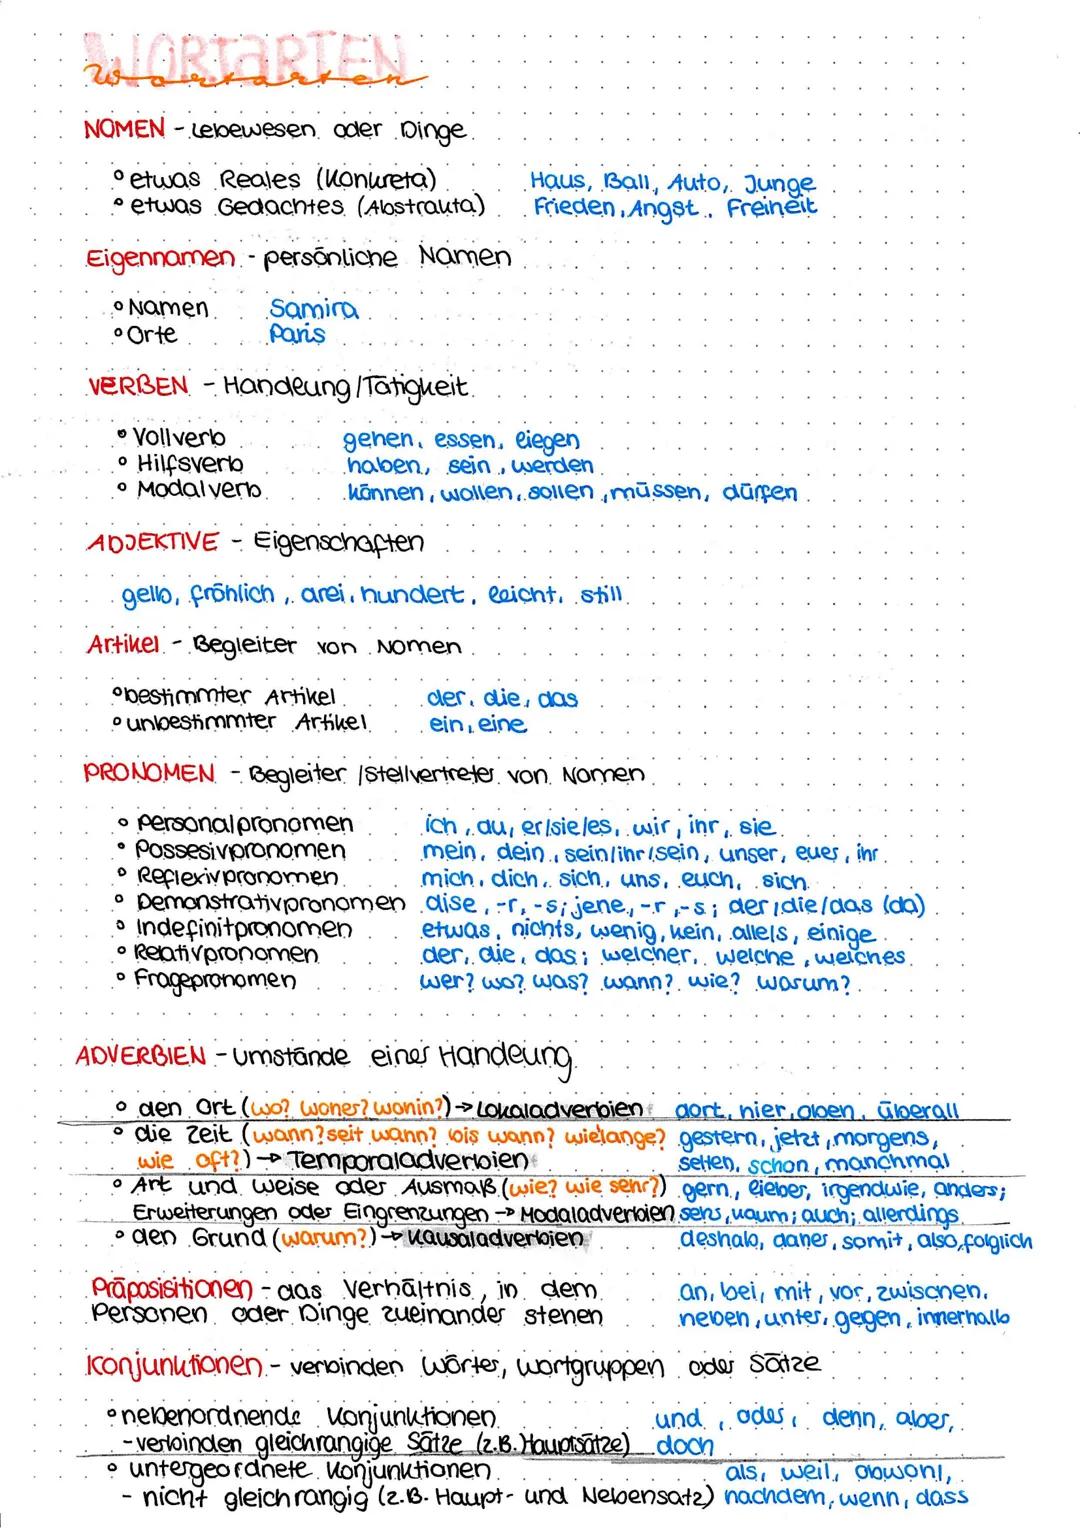 WORTARTEN
Wortarten
NOMEN - Lebewesen oder Dinge
° etwas Reales (Konkreta) Haus, Ball, Auto, Junge
° etwas Gedachtes (Abstrakta) Frieden, Angst, Freiheit
Eigennamen - persönliche Namen
° Namen Samira
° Orte Paris
VERBEN - Handlung/Tätigkeit
° Vollverb gehen, essen, liegen
° Hilfsverb haben, sein, werden
° Modalverb können, wollen, sollen, müssen, dürfen
ADJEKTIVE - Eigenschaften
gelb, fröhlich, drei, hundert, leicht, still
Artikel - Begleiter von Nomen
° bestimmter Artikel der, die, das
° unbestimmter Artikel ein, eine
PRONOMEN - Begleiter/Stellvertreter von Nomen
° Personalpronomen ich, du, er/sie/es, wir, ihr, sie
° Possesivpronomen mein, dein, sein/ihr/sein, unser, euer, ihr
° Reflexivpronomen mich, dich, sich, uns, euch, sich
° Demonstrativpronomen dise, -r, -s; jene, -r, -s; der/die/das (da)
° Indefinitpronomen etwas, nichts, wenig, kein, alle/s, einige
° Relativpronomen der, die, das; welcher, welche, welches
° Fragepronomen wer? wo? was? wann? wie? warum?
ADVERBIEN - Umstände einer Handlung
° den Ort (wo? woher? wohin?) → Lokaladverbien dort, hier, oben, überall
° die Zeit (wann? seit wann? bis wann? wielange? gestern, jetzt, morgens,
wie oft?) → Temporaladverbien selten, schon, manchmal
° Art und Weise oder Ausmaß (wie? wie sehr?) gern, lieber, irgendwie, anders;
Erweiterungen oder Eingrenzungen → Modaladverbien sehr, kaum; auch; allerdings
° den Grund (warum?) → Kausaladverbien deshalb, daher, somit, also, folglich
Präposisitionen - das Verhältnis, in dem an, bei, mit, vor, zwischen,
Personen oder Dinge zueinander stehen neben, unter, gegen, innerhalb
Konjunktionen - verbinden Wörter, Wortgruppen oder Sätze
° nebenordnende Konjunktionen und, oder, denn, aber,
- verbinden gleichrangige Sätze (z.B. Hauptsätze) doch
° untergeordnete Konjunktionen als, weil, obwohl,
- nicht gleichrangig (z.B. Haupt- und Nebensatz) nachdem, wenn, dass